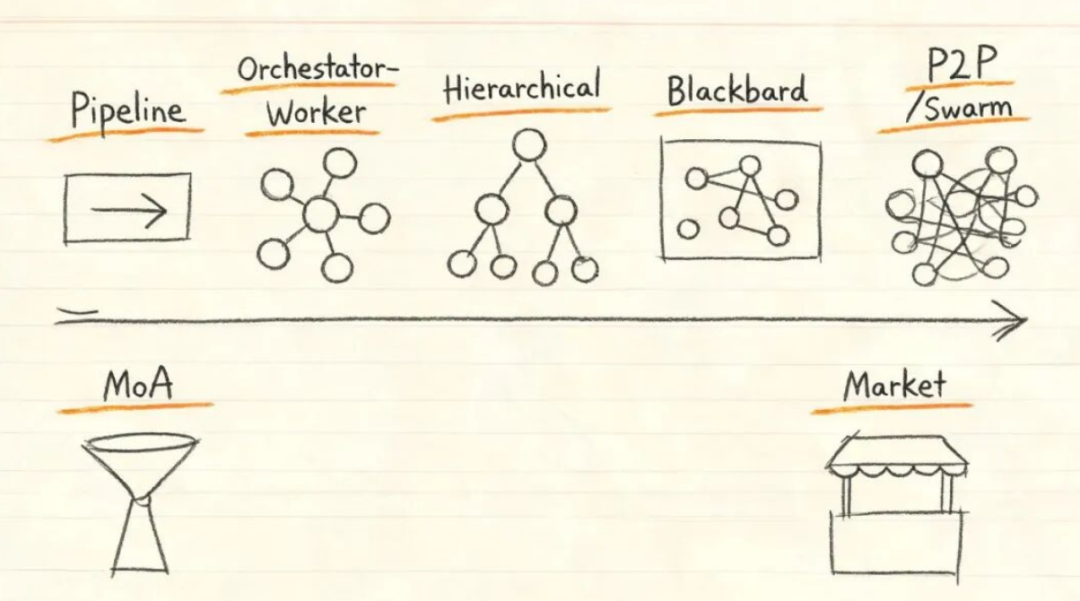 Pipeline
Orchestator-
Worker
Hierarchical
Blackbard
P2P
/Swarm
MoA
Market